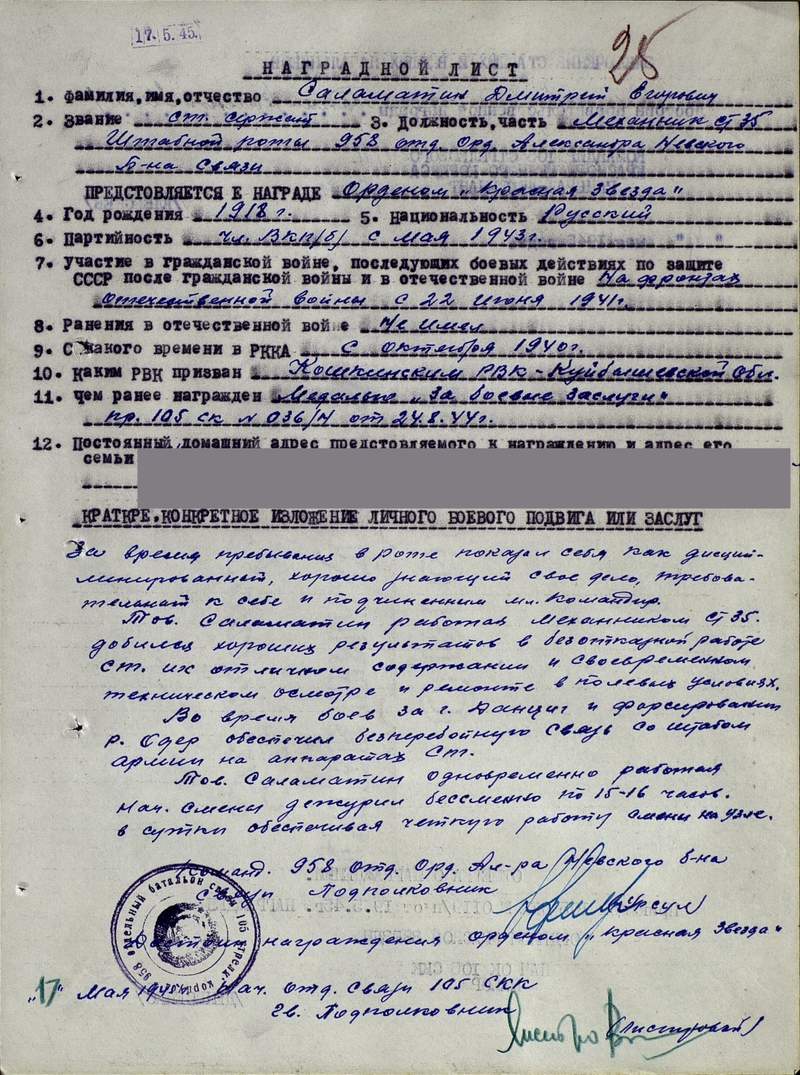 17.5.45.
25
НАГРАДНОЙ ЛИСТ
1. фамилия,имя,отчество Саламатин Дмитрий Егорович
2. Звание ст. сержант 3. Должность,часть Механник ст 35
Штабной роты 958 отд. Орд. Александра Невского
Б-на Связи
ПРЕДСТОВЛЯЕТСЯ Е НАГРАДЕ Орденом „Красная Звезда"
4. Год рождения 1918 г. 5. Национальность Русский
6. Партийность чл. ВКП/б/ с мая 1943г.
7. участие в гражданской войне, последующих боевых действиях по защите
СССР после гражданской войны и в отечественной войне На фронтах
Отечественной войны с 22 июня 1941г.
8. Ранения в отечественной войне Не имел
9. С какого времени в РККА С октября 1940г.
10. Каким РВК призван Кошкинским РВК-Куйбышевской Обл.
11. чем ранее награжден Медалью „За боевые заслуги"
пр. 105 СК N 036/Н от 24.8.44г.
12. Постоянный,домашний адрес предстовляемого к награждению и адрес его
семьи
КРАТКРЕ,КОНКРЕТНОЕ ИЗЛОЖЕНИЕ ЛИЧНОГО БОЕВОГО ПОДВИГА ИЛИ ЗАСЛУГ
За время пребывания в роте показал себя как дисцип-
линированный, хорошо знающий свое дело, требова-
тельный к себе и подчиненным мл. командир.
Тов. Саламатин работая механником ст 35.
добился хороших результатов в безотказной работе
СТ. их отличном содержании и своевременном
техническом осмотре и ремонте в полевых условиях.
Во время боев за г. Данциг и форсировании
р. Одер обеспечил безперебойную связь со штабом
армии на аппаратах СТ.
Тов. Саламатин одновременно работая
нач. смены дежурил бессменно по 15-16 часов.
в сутки обеспечивая четкую работу смены на узле.
Команд. 958 Отд. Орд. Ал-ра Невского б-на
Связи Подполковник Бурсул
958 отдельный батальон связи 105 стрел. корпуса
Достоин награждения орденом „Красная Звезда"
"17" Мая 1945 Нач. отд. связи 105 СКК
Гв. Подполковник